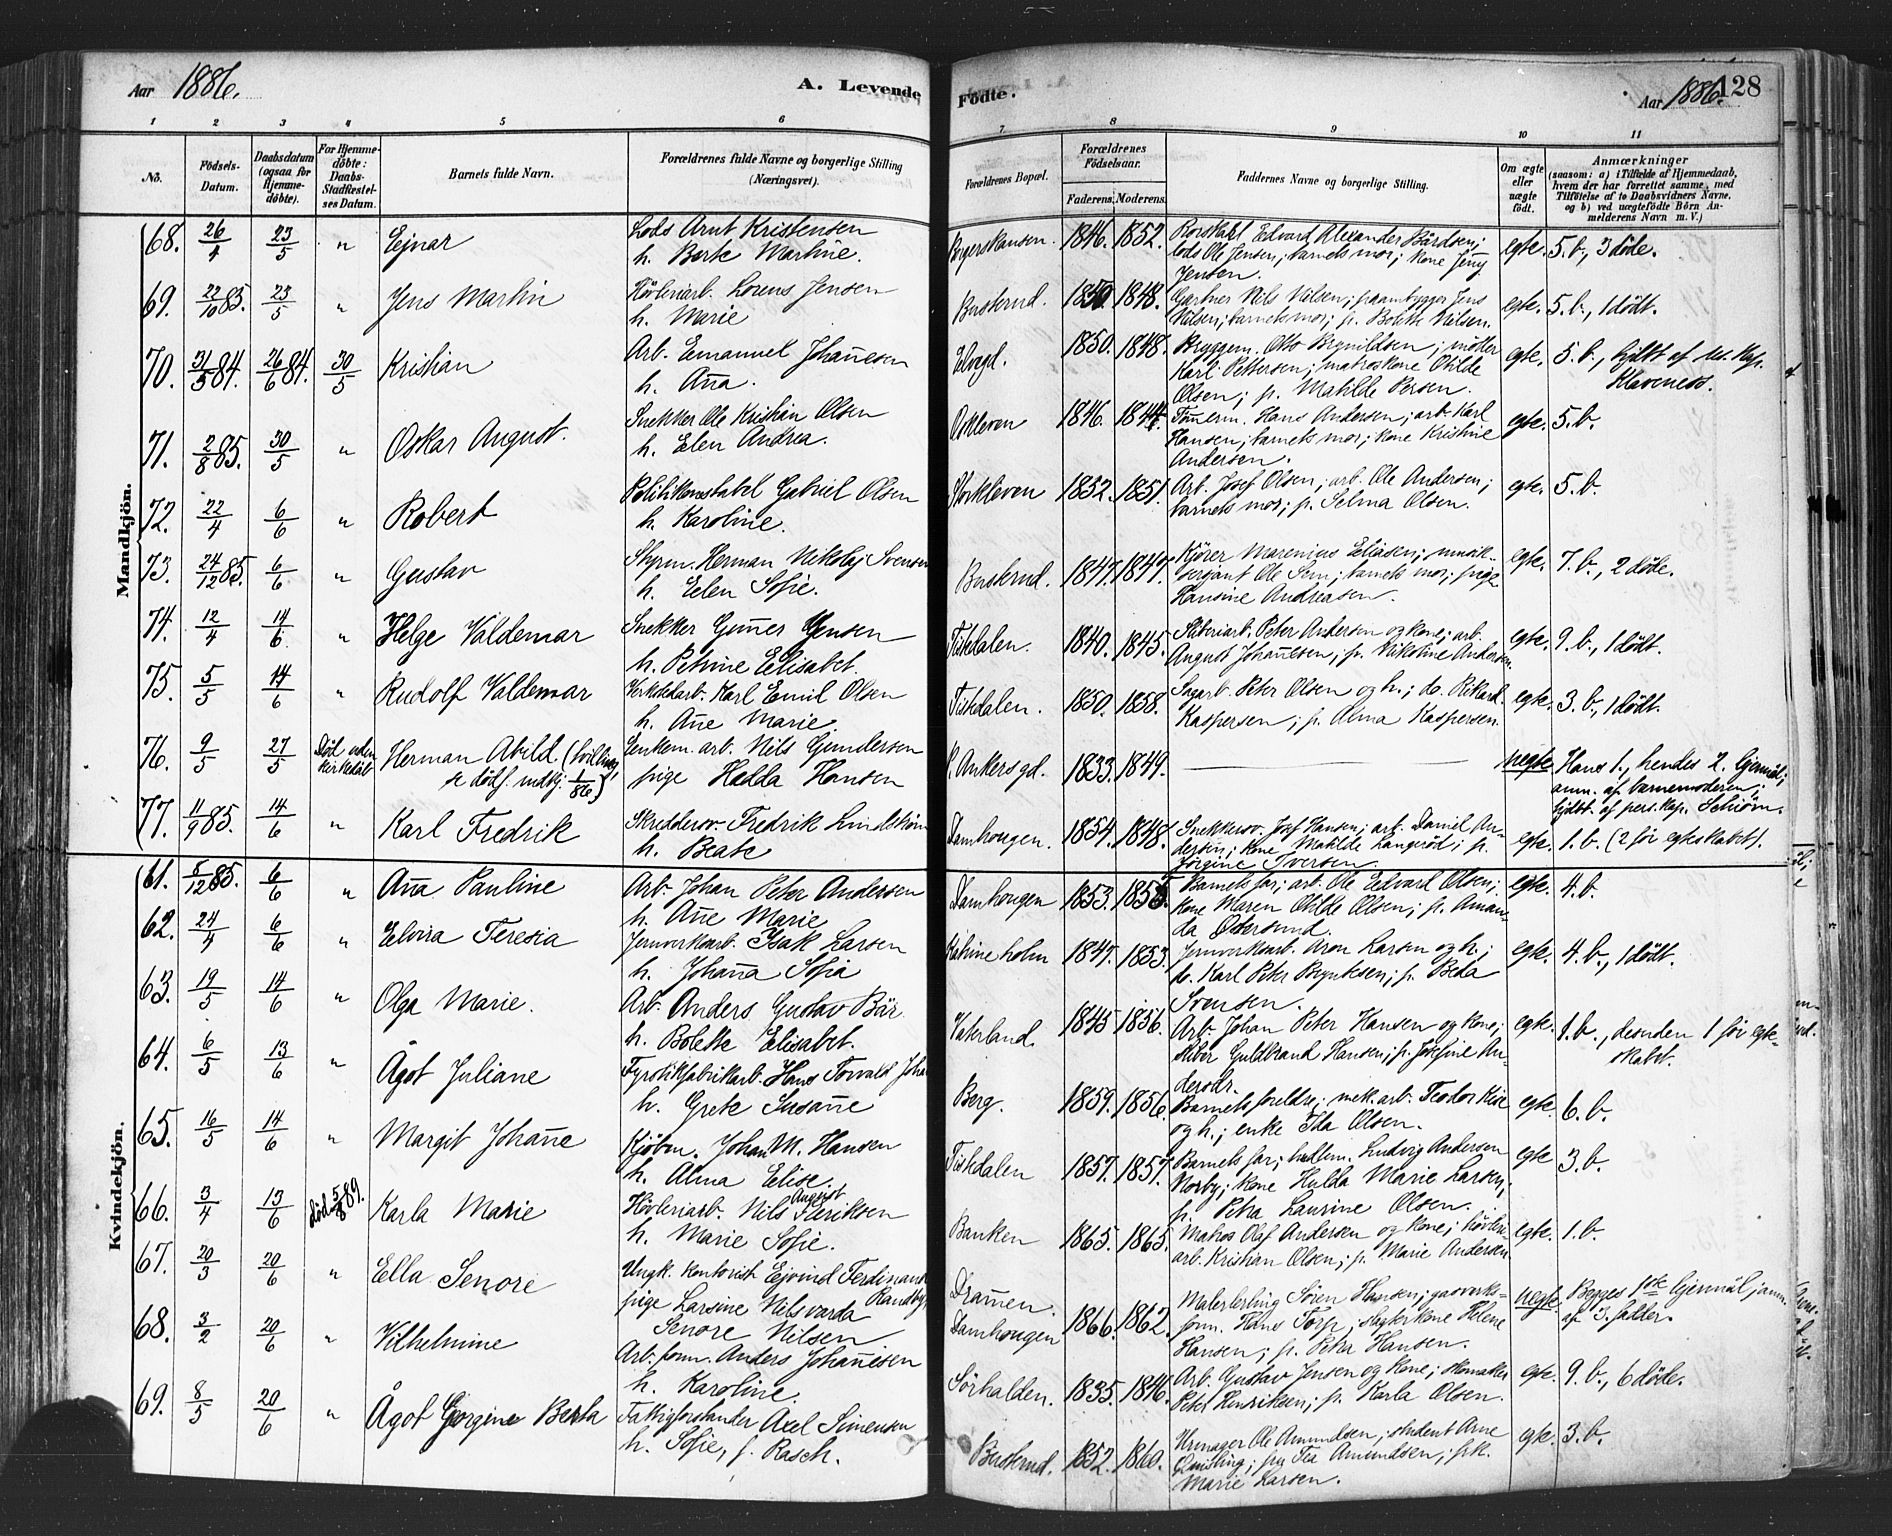 Aar 1886.
A. Levende
Fødte.
Aar 1886. 128
1 2 3 4 5 6 7 8 9 10 11
No.
Fødsels-Datum.
Daabsdatum (ogsaa for Hjemme-døbte).
For Hjemme-døbte: Daabs-Stadfæstel-ses Datum.
Barnets fulde Navn.
Forældrenes fulde Navne og borgerlige Stilling (Næringsvei).
Forældrenes Bopæl.
Forældrenes Fødselsaar.
Faderens. Moderens.
Faddernes Navne og borgerlige Stilling.
Om ægte eller uægte født.
Anmærkninger
(saasom: a) i Tilfælde af Hjemmedaab, hvem der har forrettet samme, med Tilføielse af to Daabsvidners Navne, og b) ved uægtefødte Børn An-melderens Navn m. V.)
Mandkjön.
68. 26/4 23/5 " Ejnar Lods Arnt Kristensen
h. Berte Martine. 1846. 1852. Edvard Alexander Bårdsen;
lods Ole Jensen; barnets mor; kone Jenny
Jensen. egte. 5. b., 3 döde.
69. 22/10 85. 23/5 " Jens Martin Hövleriarb. Lorens Jensen
h. Marie Buskerud. 1850 1848. Gartner Nils Nilsen; Jens
Nilsen; barnets mor; p. Bolette Nilsen. egte. 5. b., 1 dödt.
70. 31/5 84. 26/6 84. 30/5 Kristian Arb. Emanuel Johanesen
h. Ana. 1850. 1848. Bryggem. Otto Brynildsen;
Karl Pettersen; matroskone Otilde
Olsen; p. Matilde Persen. egte. 5. b., hjdbt af
Klaveness.
71. 2/8 85. 30/5 " Oskar August. Snekker Ole Kristian Olsen
h. Elen Andrea. Oskleven 1846. 1844. Tömerm. Hans Andersen; arb. Karl
Hansen; barnets mor; kone Kristine
Andersen. egte. 5. b.
72. 22/4 6/6 " Robert Politikonstabel Gabriel Olsen
h. Karoline. Storkleven 1852. 1851. Arb. Josef Olsen; arb. Ole Andersen;
barnets mor; p. Selma Olsen. egte. 5. b.
73. 24/12 85. 6/6 " Gustav Styrm. Herman Nikolaj Svensen
h. Elen Sofie. Buskerud. 1847. 1847. Kjörer Marenius Eliasen; musik-
sergant Ole Sem; barnets mor; pige
Hansine Andreasen. egte. 7. b., 2 döde.
74. 12/4 14/6 " Helge Valdemar Snekker Guner Jensen
h. Petrine Elisabet Tistedalen. 1840. 1845. Sliberiarb. Peter Andersen og kone; arb.
August Johanesen; p. Nikoline Andersen. egte. 9. b., 1 dödt.
75. 5/5 14/6 " Rudolf Valdemar Verkstedarb. Karl Emil Olsen
h. Ane Marie. Tistedalen. 1850. 1858. Sagarb. Peter Olsen og h.; do. Rikard
Kaspersen; p. Alma Kaspersen. egte. 3. b., 1 dödt.
76. 9/5 27/5 Död uden
kirkedåb Herman Abild (tvilling,
se dödf. indtj. 1/86) arb. Nils Gundersen
pige Hulda Hansen P. Ankersgd. 1833. 1849. uegte Hans 1., hendes 2. lejermål;
anm. af barnemoderen;
hjdbt. af pers. kap. Schiörn.
77. 11/9 85. 14/6 " Karl Fredrik Skreddersv. Fredrik Lindström
h. Beate Damhaugen. 1854. 1848. Snekkersv. Josef Hansen; arb. Daniel An-
dersen; kone Matilde Langeröd; p.
Jörgine Iversen. egte. 1. b. (2 för egteskabet).
Kvindekjön.
61. 5/12 85. 6/6 " Ana Pauline Arb. Johan Peter Andersen
h. Ane Marie Damhaugen 1853. 1855 Barnets far; arb. Ole Edvard Olsen;
kone Maren Otilde Olsen; p. Aman-
da Östersund. egte. 4. b.
62. 24/4 6/6 " Elvira Teresia Jernverksarb. Isak Larsen
h. Johana Sofia Katrineholm 1847. 1853. Jernverksarb. Aron Larsen og h.;
do. Karl Peter Bryntesen; p. Beda
Svensen. egte. 4. b., 1 dödt.
63. 19/5 14/6 " Olga Marie. Arb. Anders Gustav Bär
h. Bolette Elisabet. Vaterland. 1845 1856. Arb. Johan Peter Hansen og kone;
sliber Guldbrand Hansen; p. Josefine An-
dersdr. egte. 1. b., desuden 1 för egte-
skabet.
64. 6/5 13/6 " Ågot Juliane Fyrstikfabrikarb. Hans Torvald
h. Grete Susane Berg. 1859. 1856. Barnets foreldre; mek. arb. Teodor
og h.; enke Ida Olsen. egte. 6. b.
65. 16/5 14/6 " Margit Johane Kjöbm. Johan M. Hansen
h. Alma Elise. Tistedalen 1857. 1857. Barnets far; Ludvig Andersen
Norby; kone Hulda Marie Larsen;
p. Petra Laurine Olsen. egte 3. b.
66. 3/4 13/6 död 5/8 89. Karla Marie Hövleriarb. Nils August Eriksen
h. Marie Sofie. Banken 1865. 1865. Matros Olaf Andersen og kone; hövleri-
arb. Kristian Olsen; p. Marie Andersen egte. 1. b.
67. 20/3 20/6 " Ella Senore Ungk. kontorist Ejvind Ferdinand
Randby,
pige Larsine Nilsvarda
Senore Nilsen Dramen.
Damhaugen 1866. 1862. Malerlerling Sören Hansen; gasverks-
form. Hans Torp; slagterkone Helene
Hansen; p. Petra Hansen. uegte. Begges 1ste lejermål; anm.
af 3. fadder.
68. 3/2 20/6 " Vilhelmine Arb. form. Anders Johanesen
h. Karoline. Sörhalden. 1835. 1846. Arb. Gustav Jensen og kone; skomaker
Peter Henriksen; p. Karla Olsen. egte. 9. b., 6 döde.
69. 8/5 20/6 " Ågot Gorgine Berta Fattigforstander Axel Simensen
h. Sofie, f. Rasch. Buskerud. 1852. 1860. Urmager Ole Amundsen; student Arne
Quisling; fru Tea Amundsen; frk.
Marie Larsen. egte. 3. b.